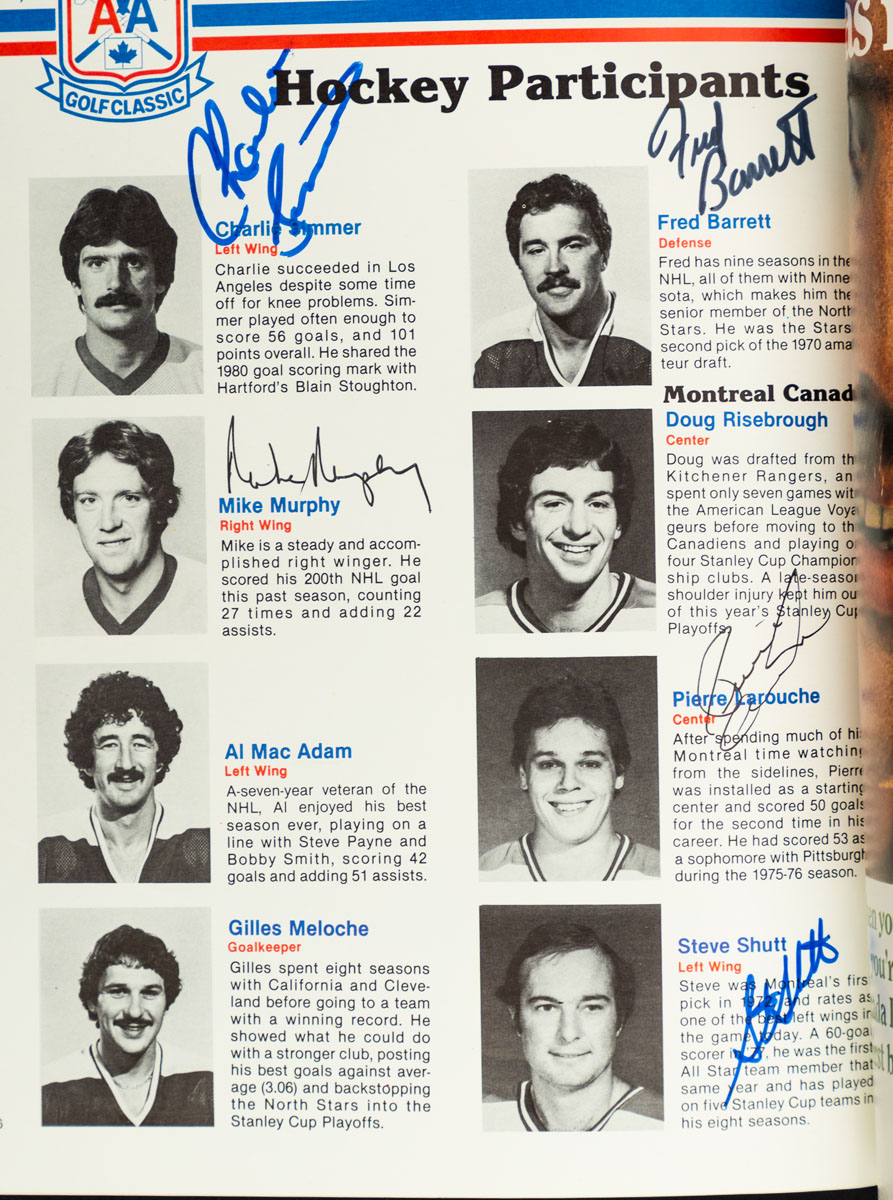 AA
GOLF CLASSIC
Hockey Participants
Charlie Simmer
Charlie Simmer
Left Wing
Charlie succeeded in Los
Angeles despite some time
off for knee problems. Sim-
mer played often enough to
score 56 goals, and 101
points overall. He shared the
1980 goal scoring mark with
Hartford's Blain Stoughton.
Mike Murphy
Mike Murphy
Right Wing
Mike is a steady and accom-
plished right winger. He
scored his 200th NHL goal
this past season, counting
27 times and adding 22
assists.
Al Mac Adam
Left Wing
A-seven-year veteran of the
NHL, Al enjoyed his best
season ever, playing on a
line with Steve Payne and
Bobby Smith, scoring 42
goals and adding 51 assists.
Gilles Meloche
Goalkeeper
Gilles spent eight seasons
with California and Cleve-
land before going to a team
with a winning record. He
showed what he could do
with a stronger club, posting
his best goals against aver-
age (3.06) and backstopping
the North Stars into the
Stanley Cup Playoffs.
Fred
Barrett
Fred Barrett
Defense
Fred has nine seasons in the
NHL, all of them with Minne
sota, which makes him the
senior member of the North
Stars. He was the Stars
second pick of the 1970 ama
teur draft.
Montreal Canad
Doug Risebrough
Center
Doug was drafted from th
Kitchener Rangers, an
spent only seven games wit
the American League Voya
geurs before moving to th
Canadiens and playing o
four Stanley Cup Champion
ship clubs. A late-season
shoulder injury kept him ou
of this year's Stanley Cup
Playoffs.
Pierre Larouche
Center
After spending much of hi
Montreal time watching
from the sidelines, Pierre
was installed as a starting
center and scored 50 goals
for the second time in his
career. He had scored 53 as
a sophomore with Pittsburgh
during the 1975-76 season.
Steve Shutt
Left Wing
Steve was Montreal's firs
pick in 1972, and rates as
one of the best left wings in
the game today. A 60-goal
scorer in '77, he was the first
All Star team member that
same year and has played
on five Stanley Cup teams in
his eight seasons.